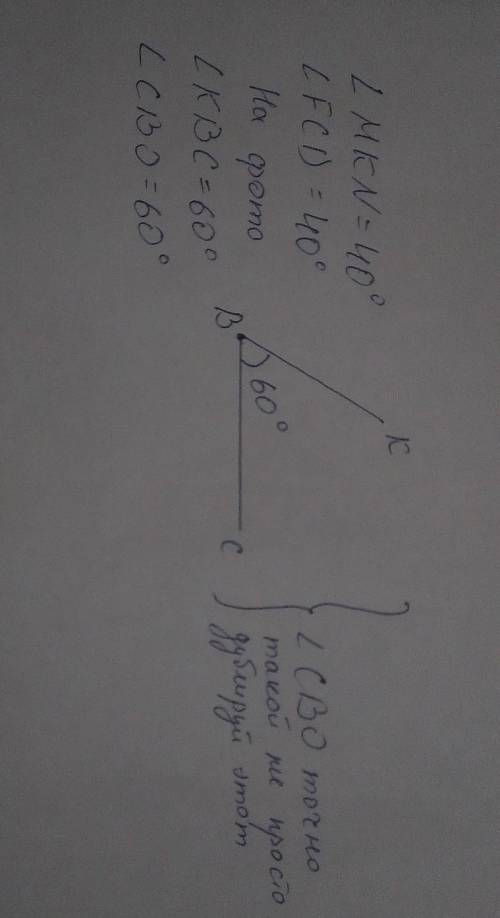 ∠ MKN = 40°
∠ FCD = 40°
На фото
∠ KBC = 60°
∠ CBO = 60°
B
60°
K
C
∠ CBO точно
такой же просто
дублируй этот